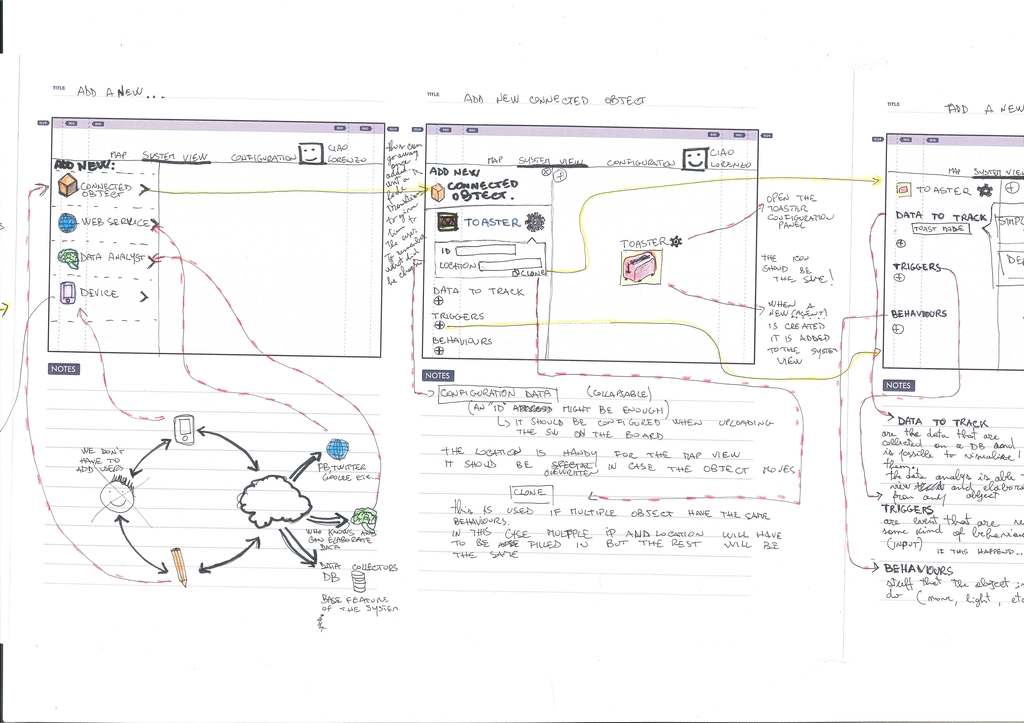 TITLE ADD A NEW...
MAP SYSTEM VIEW CONFIGURATION CIAO
LORENZO
ADD NEW:
CONNECTED
OBJECT
WEB SERVICE
DATA ANALYST
DEVICE
NOTES
WE DON'T
HAVE TO
ADD USERS
FB, TWITTER
GOOGLE ETC...
WHO KNOWS AND
CAN ELABORATE
DATA
DATA COLLECTORS
DB
BASE FEATURE
OF THE SYSTEM
this can
go away
once
added
TITLE ADD NEW CONNECTED OBJECT
MAP SYSTEM VIEW CONFIGURATION CIAO
LORENZO
ADD NEW
CONNECTED
OBJECT.
TOASTER
ID
LOCATION
CLONE
DATA TO TRACK
TRIGGERS
BEHAVIOURS
TOASTER
OPEN THE
TOASTER
CONFIGURATION
PANEL
THE ICON
SHOULD BE
THE SAME!
WHEN A
NEW (AGENT)
IS CREATED
IT IS ADDED
TO THE SYSTEM
VIEW
NOTES
CONFIGURATION DATA (COLLAPSABLE)
(AN "ID" MIGHT BE ENOUGH)
IT SHOULD BE CONFIGURED WHEN UPLOADING
THE SW ON THE BOARD
THE LOCATION IS HANDY FOR THE MAP VIEW
IT SHOULD BE IN CASE THE OBJECT MOVES
CLONE
this IS USED IF MULTIPLE OBJECT HAVE THE SAME
BEHAVIOURS.
IN THIS CASE MULTPLE IP AND LOCATION WILL HAVE
TO BE FILLED IN BUT THE REST WILL BE
THE SAME
TITLE ADD A NEW
MAP SYSTEM VIEW
TOASTER
DATA TO TRACK
TOAST MADE
TRIGGERS
BEHAVIOURS
NOTES
DATA TO TRACK
are the data that are
collected on a DB and
is possible to visualise
them.
the data analyst is able
view and elabora
from any object
TRIGGERS
are event that are
some kind of behaviou
(INPUT) IF THIS HAPPEND...
BEHAVIOURS
stuff that the object
do (move, light, etc